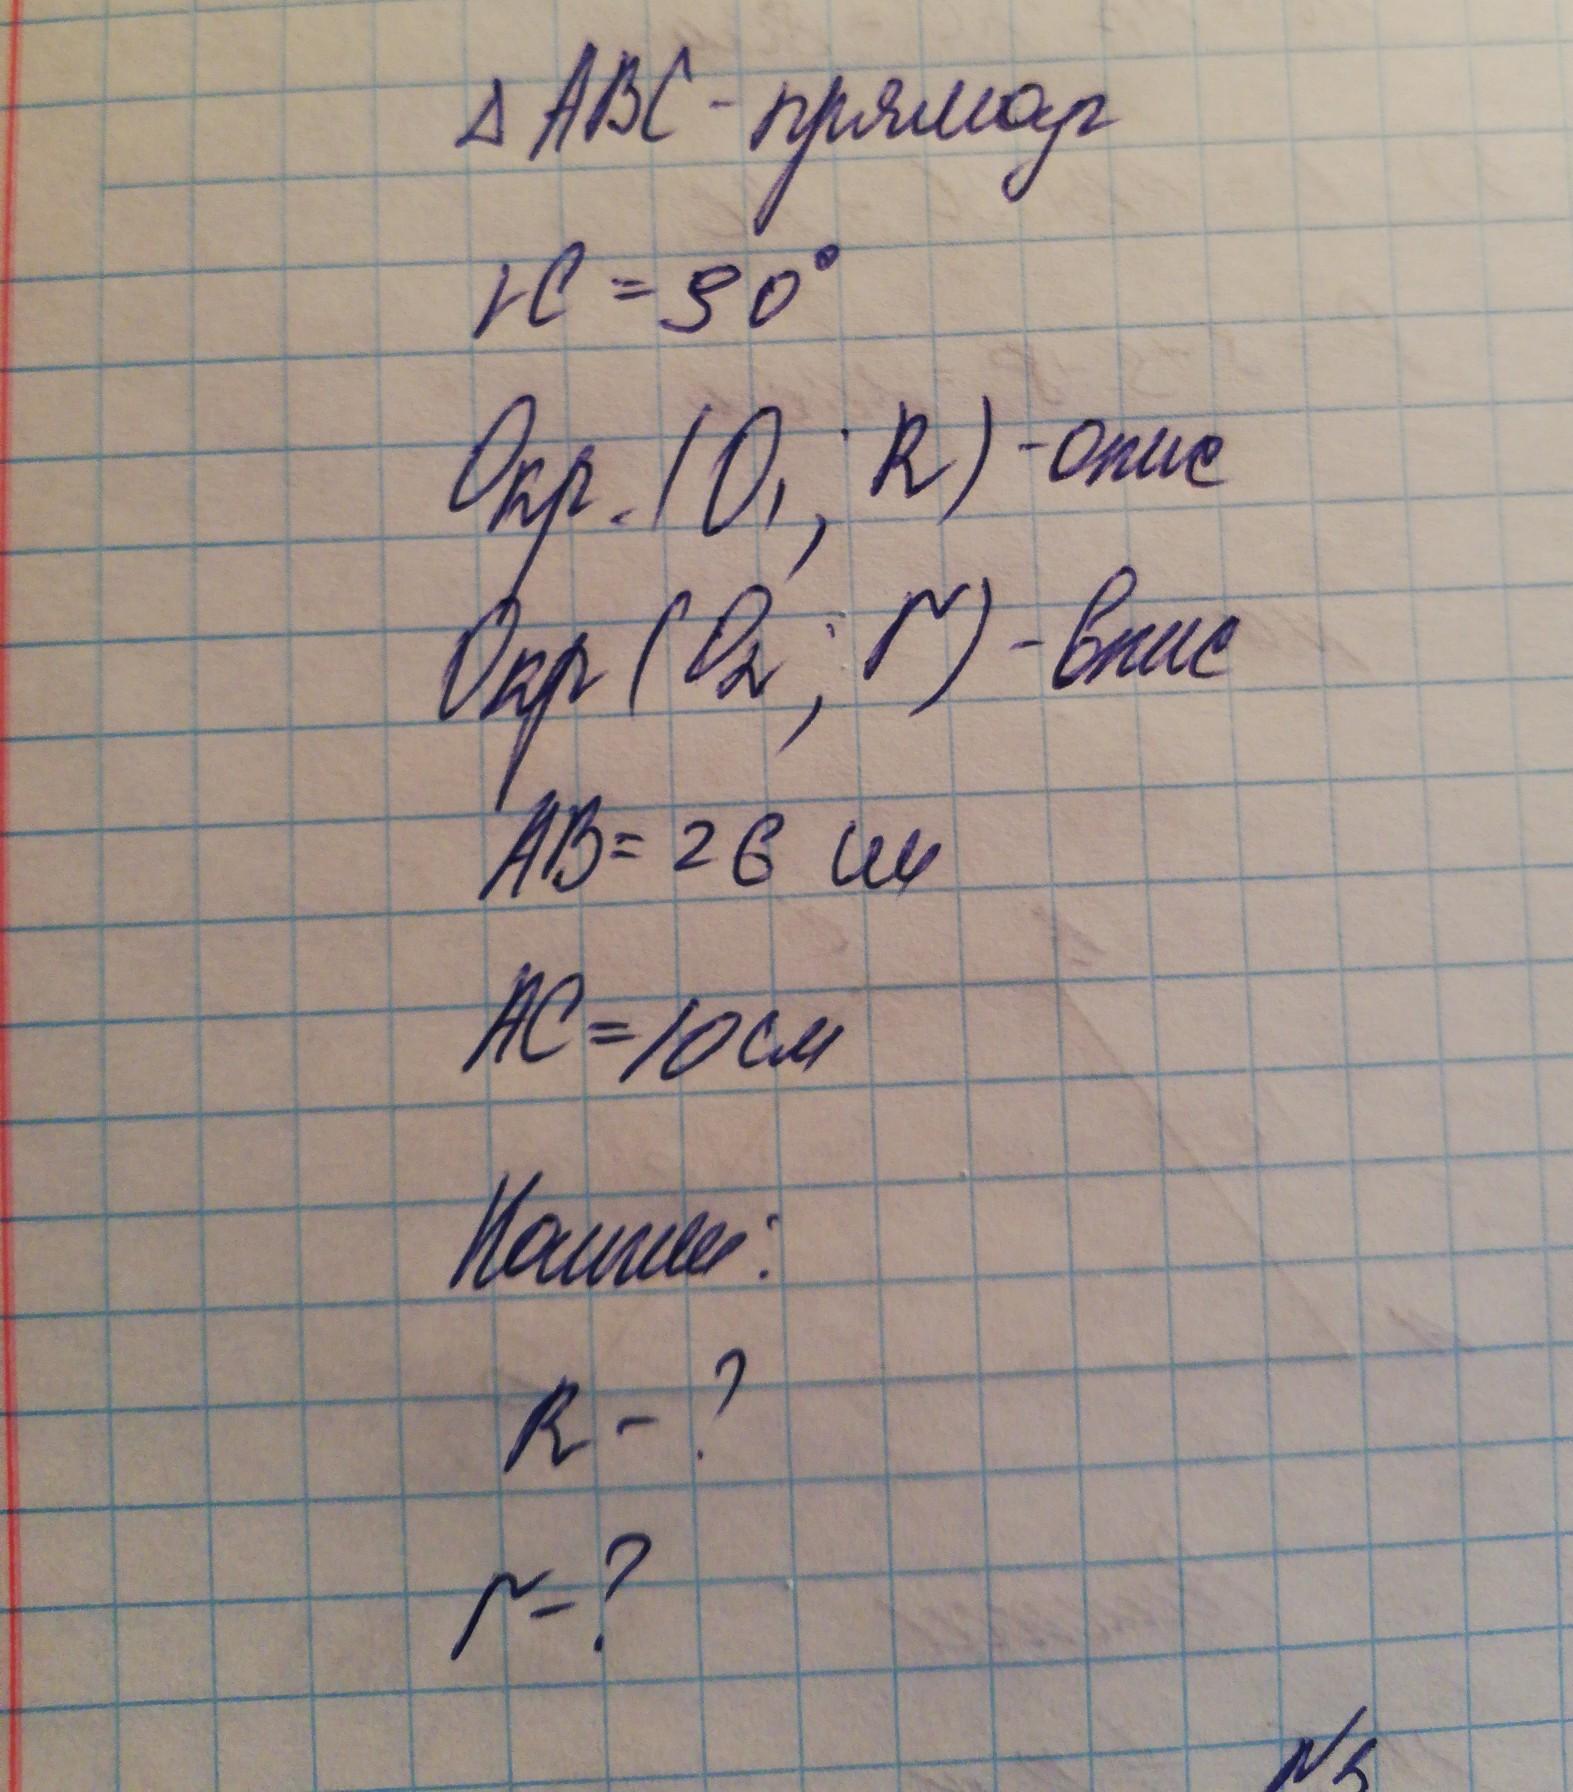 Δ ABC - прямоуг
∠C = 90°
Окр. (O₁; R) - опис
Окр (O₂; r) - впис
AB = 26 см
AC = 10 см
Найти:
R - ?
r - ?